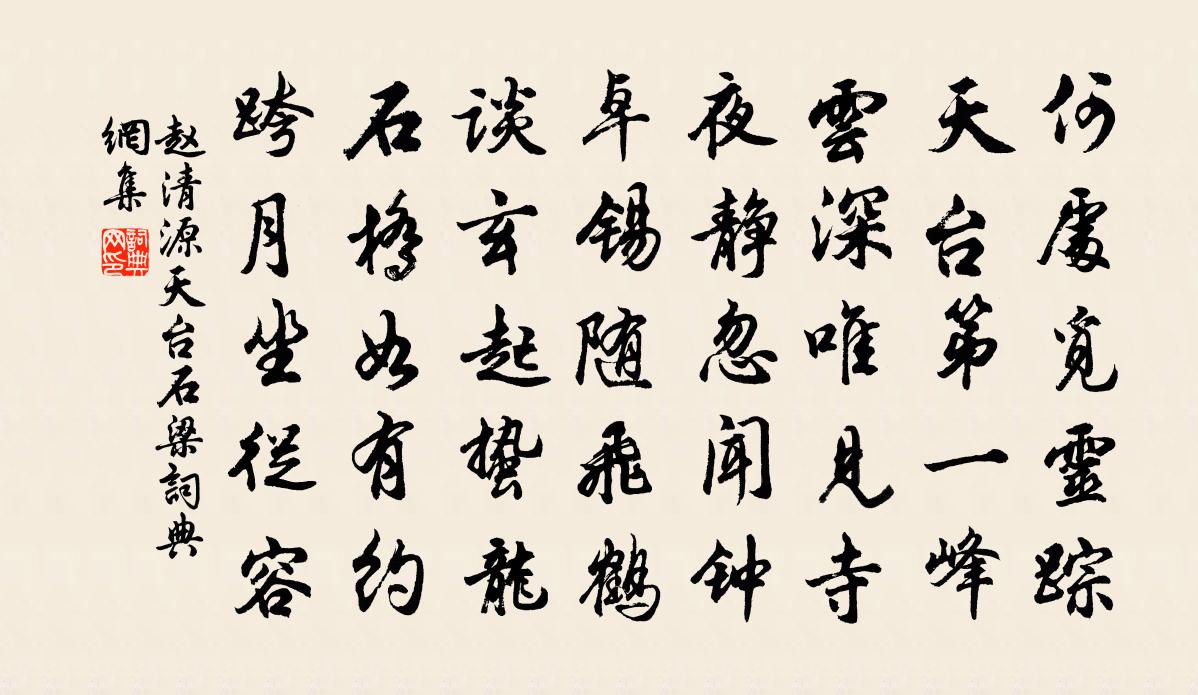 何處覓靈踪
天台第一峰
雲深唯見寺
夜静忽聞钟
卓锡随飛鶴
谈玄起蛰龍
石橋如有约
跨月坐從容
赵清源天台石梁詞典
網集
詞典網印